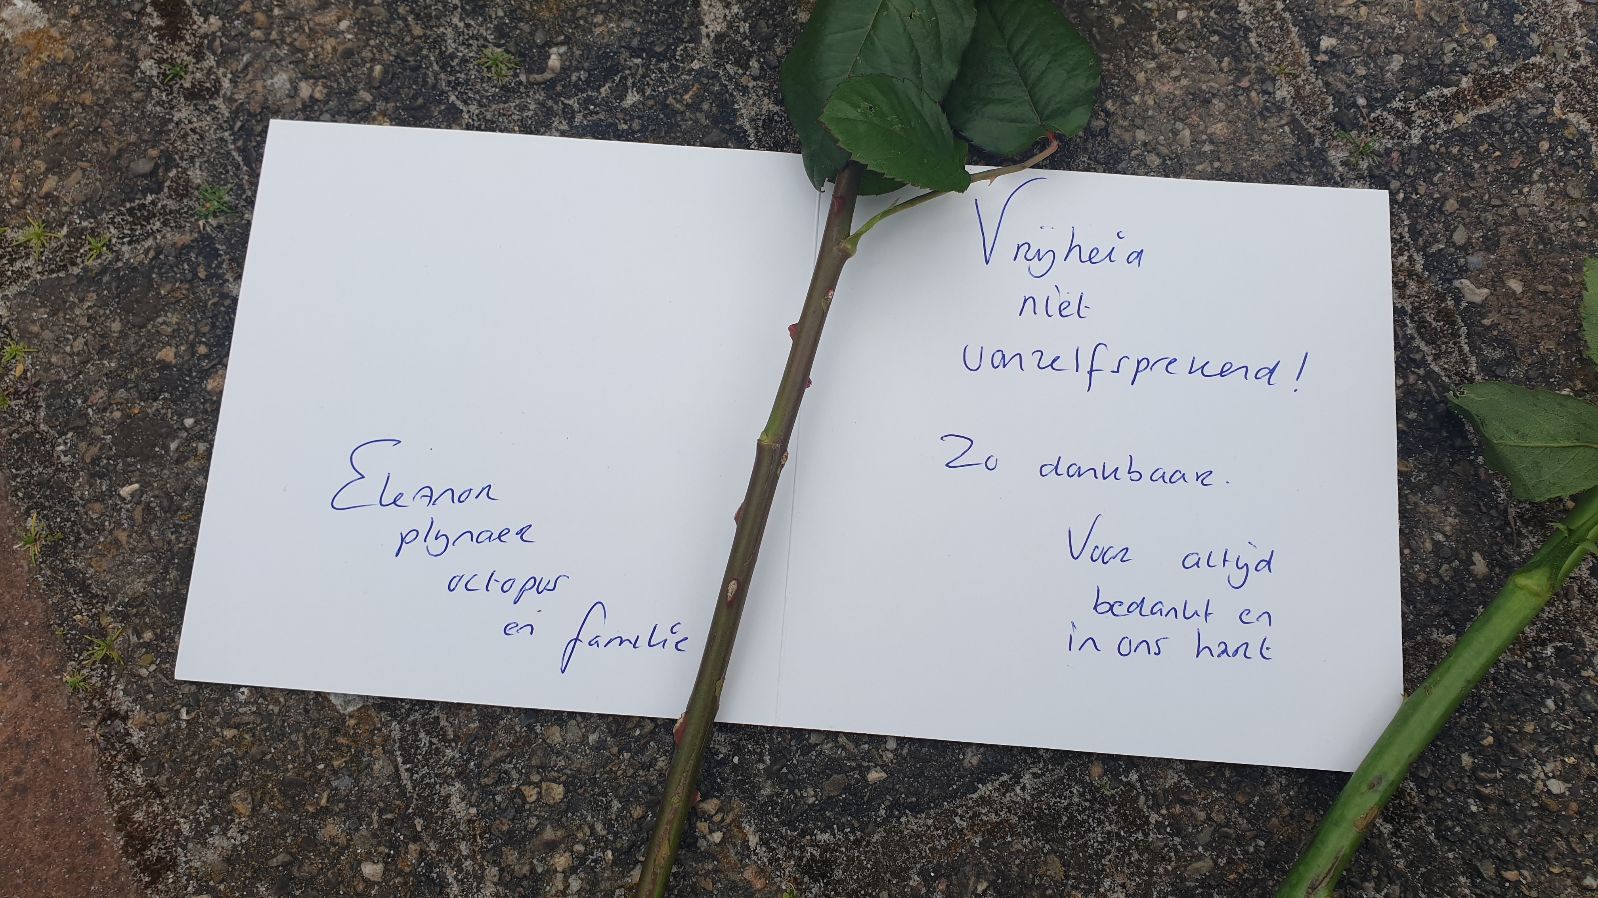 Eleanor
plynaer
octopus
en familie
Vrijheid
niet
vanzelfsprekend!
Zo dankbaar.
Voor altijd
bedankt en
in ons hart